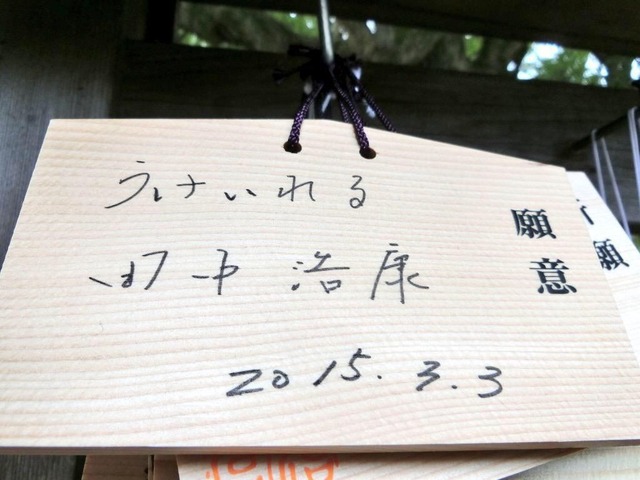 願意
うけいれる
田中 浩康
2015.3.3
願